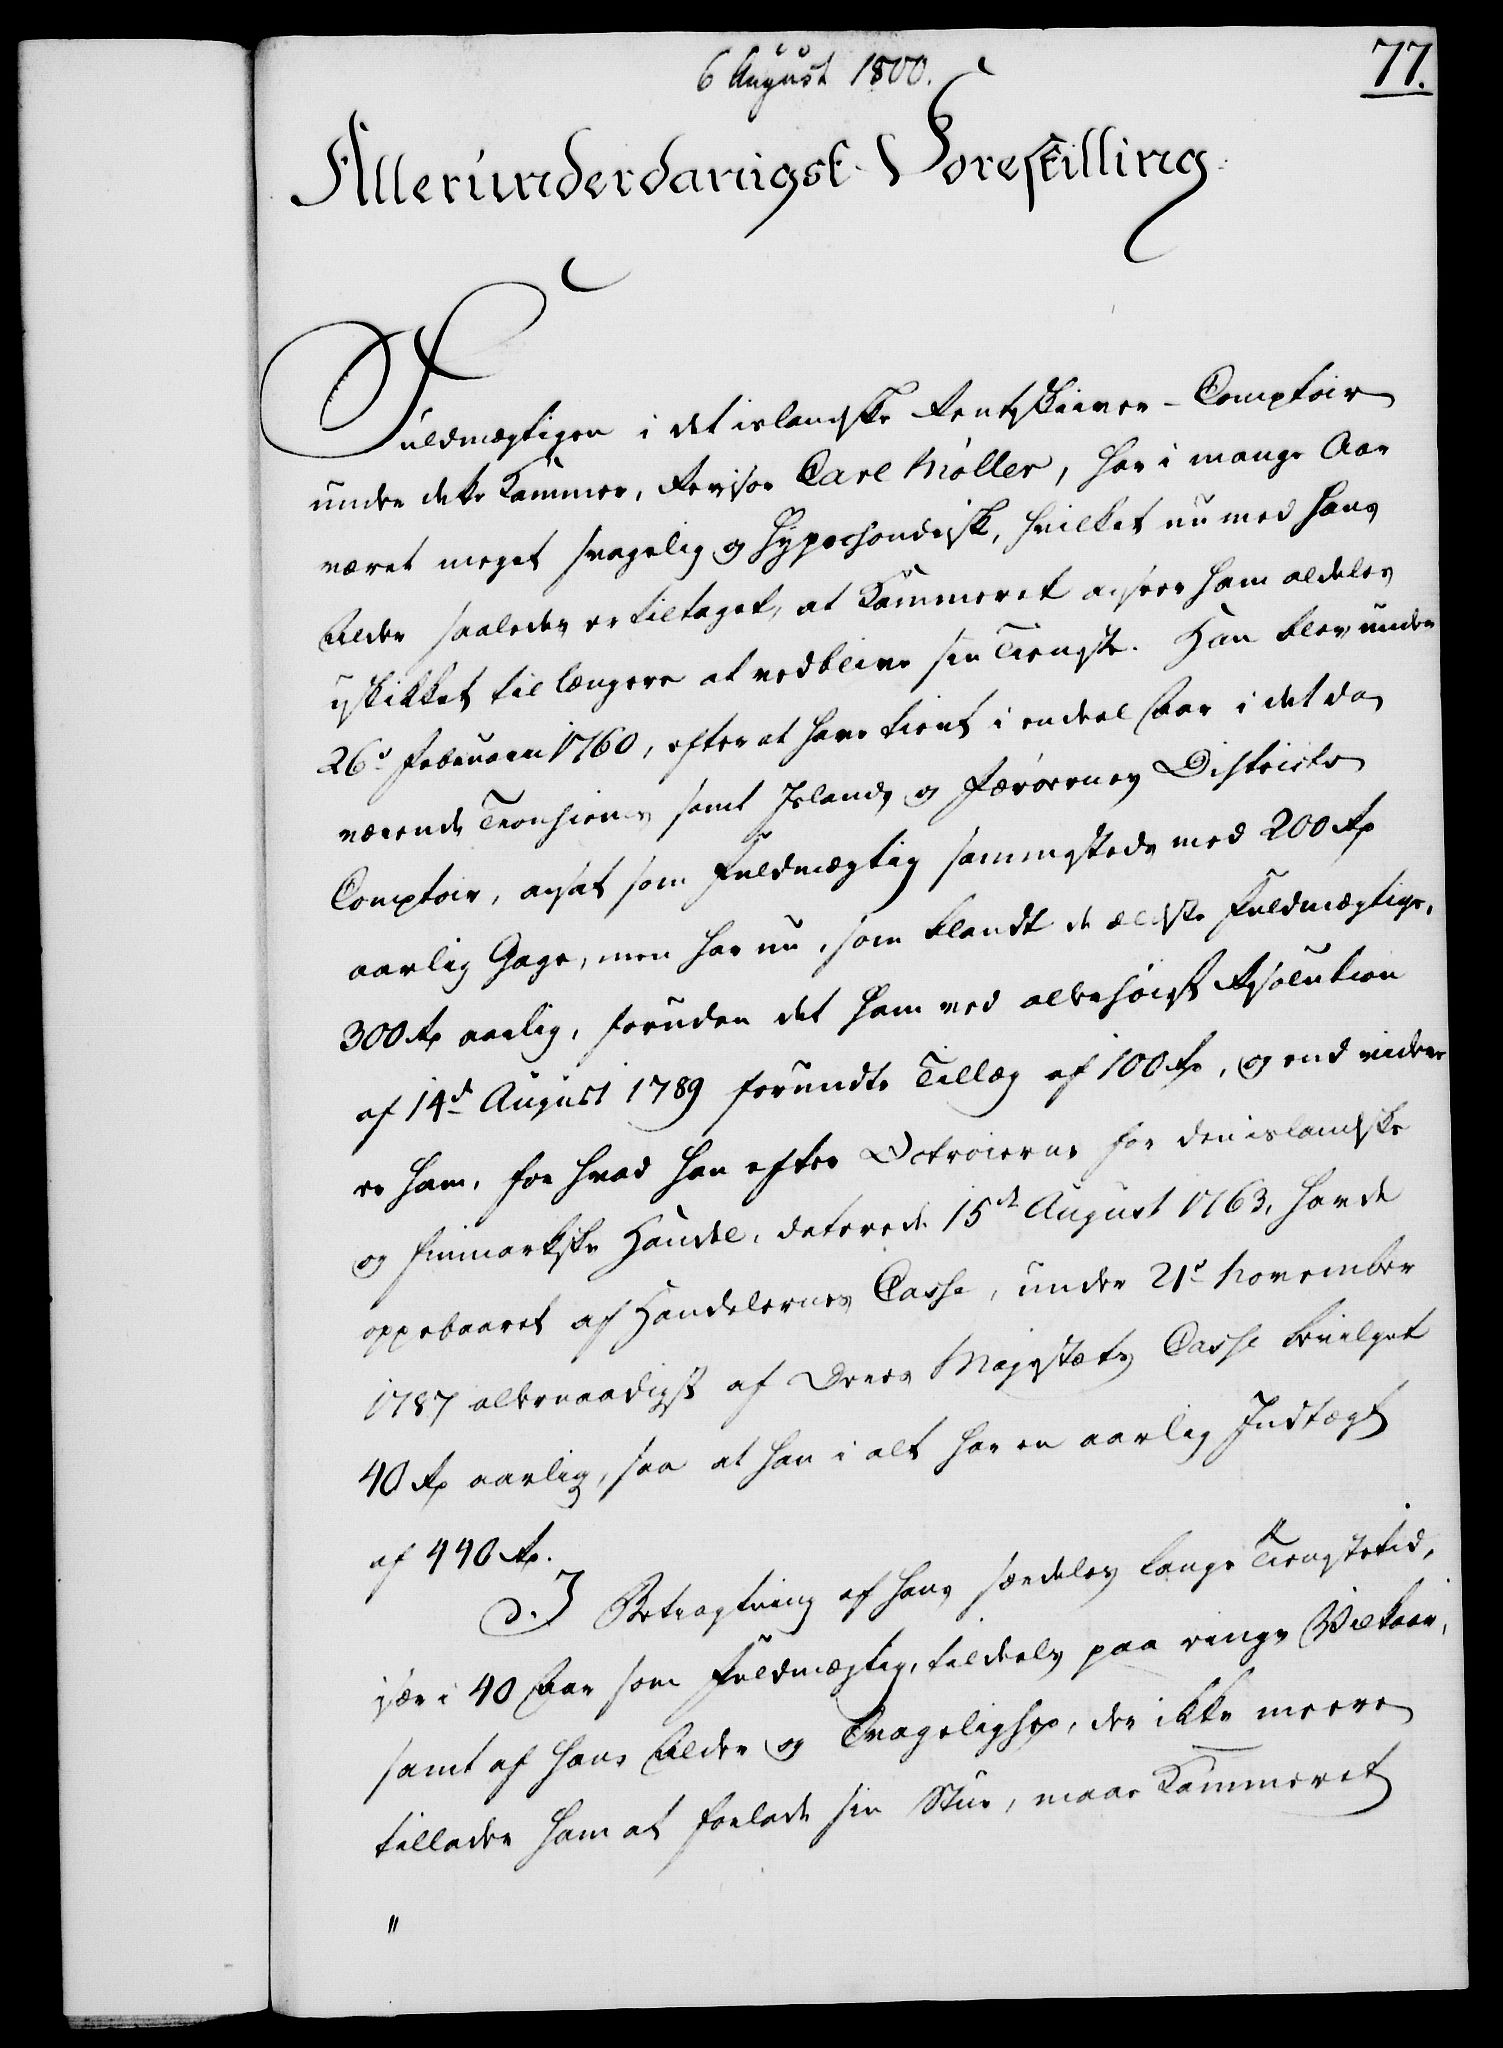 6 August 1800.
77.
Allerunderdanigst Forestilling.
Fuldmægtigen i det islandske Rentskriver-Comptoir
under dette Kammer, Revisor Carl Møller, har i mange Aar
været meget svagelig og hypochondrisk, hvilket nu med hans
Alder saaledes er tiltaget, at Kammeret anseer ham aldeles
uskikket til længere at vedblive sin Tieneste. Han blev under
26d Februarii 1760, efter at have tient i endeel Aar i det da
værende Tronhiems samt Islands og Færøernes Districts
Comptoir, ansat som Fuldmægtig sammesteds med 200 Rd
aarlig Gage, men har nu, som blandt de ældste Fuldmægtige,
300 Rd aarlig, foruden det ham ved allerhøist Resolution
af 14d August 1789 forundte Tillæg af 100 Rd, og end videre
er ham, for hvad han efter Octroierne for den islandske
og finmarkske Handel, daterede 15de August 1763, havde
oppebaaret af Handelernes Casse, under 21d November
1787 allernaadigst af Deres Majestæts Casse bevilget
40 Rd aarlig, saa at han i alt har en aarlig Indtægt
af 440 Rd.
I Betragtning af hans særdeles lange Tienestetid,
især i 40 Aar som Fuldmægtig, tildeels paa ringe Vilkaar,
samt af hans Alder og Svagelighed, der ikke meere
tillader ham at forlade sin Stue, maae Kammeret
"